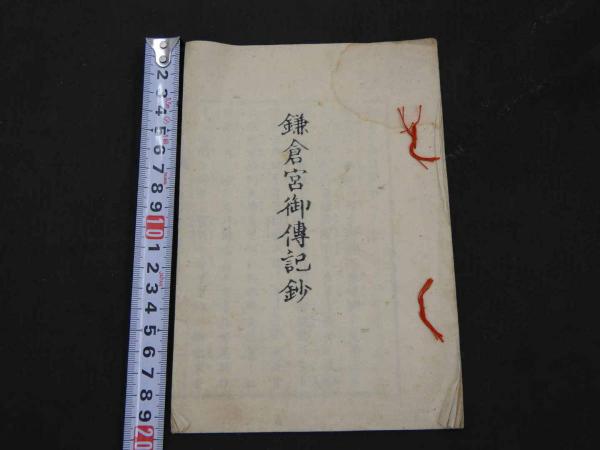 鎌倉宮御傳記鈔
2
3
4
5
6
7
8
9
10
1
2
3
4
5
6
7
8
9
20